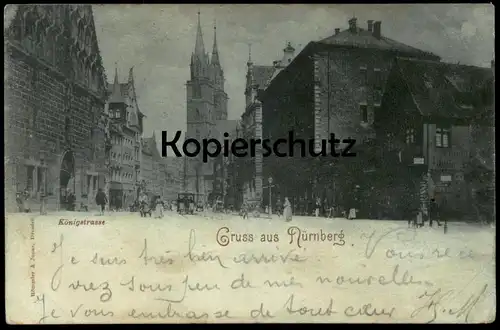 Kopierschutz
Königstrasse
Gruss aus Nürnberg
Je suis très bien arrivé Vous rece
vrez sous peu de mes nouvelles.
Je vous embrasse de tout cœur